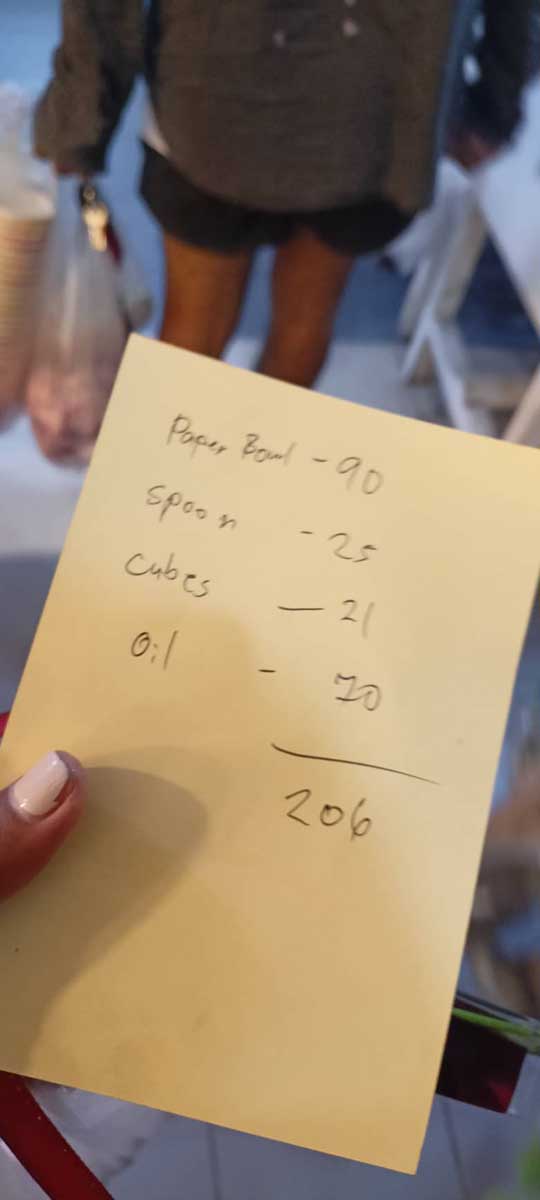 Paper Bowl - 90
Spoon - 25
Cubes - 21
Oil - 70
206